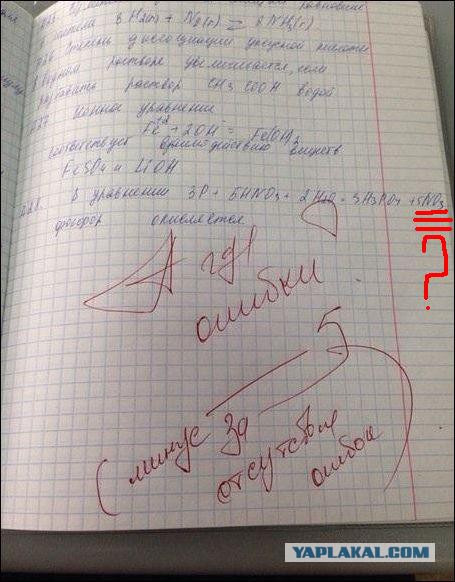 3 H2(г) + N2(г) = 2 NH3(г)
Степень диссоциации уксусной кислоты
в водном растворе увеличивается, если
разбавить раствор CH3COOH водой
Ионное уравнение
Fe+2 + 2OH- = Fe(OH)2
соответствует взаимодействию веществ
FeSO4 и LiOH
В уравнении 3P + 5HNO3 + 2H2O = 3H3PO4 + 5NO
фосфор окисляется
?
А где
ошибки
5
(минус за
отсутствие
ошибок)
YAPLAKAL.COM